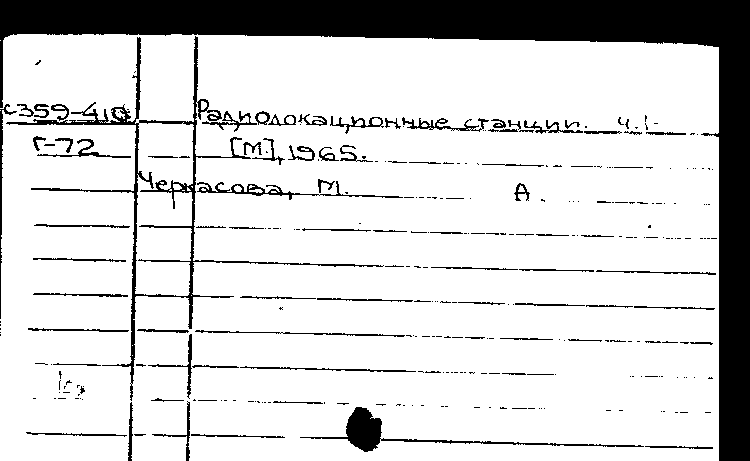 с359-410 Радиолокационные станции. ч.1-
Г-72 [М], 1965.
Черкасова, М. А.